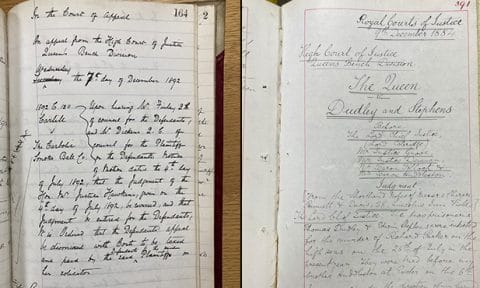 164
In the Court of Appeal
On appeal from the High Court of Justice
Queen's Bench Division
Wednesday
the 7th day of December 1892
1892 C. 120
Carlill
v
The Carbolic
Smoke Ball Co.
Upon hearing Mr. Finlay, Q.C.
counsel for the Defendants,
and Mr. Dickens Q.C. of
counsel for the Plaintiff
on the Defendants Notice
of Motion dated the 4th day
of July 1892, that the Judgment of the
Hon. Mr. Justice Hawkins, given on the
4th day of July 1892, be reversed, and that
Judgment be entered for the Defendants,
It is Ordered that the Defendants appeal
be dismissed with Costs to be taxed
and paid by the Defendants to the Plaintiff or
her solicitor
2
391
Royal Courts of Justice
9th December 1884
High Court of Justice
Queens Bench Division
The Queen
v
Dudley and Stephens
Before
The Lord Chief Justice
(Lord Coleridge)
Mr Justice Grove
Judgment
From the Shorthand
Lincolns Inn Fields
The Lord Chief Justice The two prisoners
Thomas Dudley & Edwin Stephens were indicted
for the murder of Richard Parker on the
high seas on the 25th of July in the
present year. They were tried before my
brother Huddleston at Exeter on the 6th